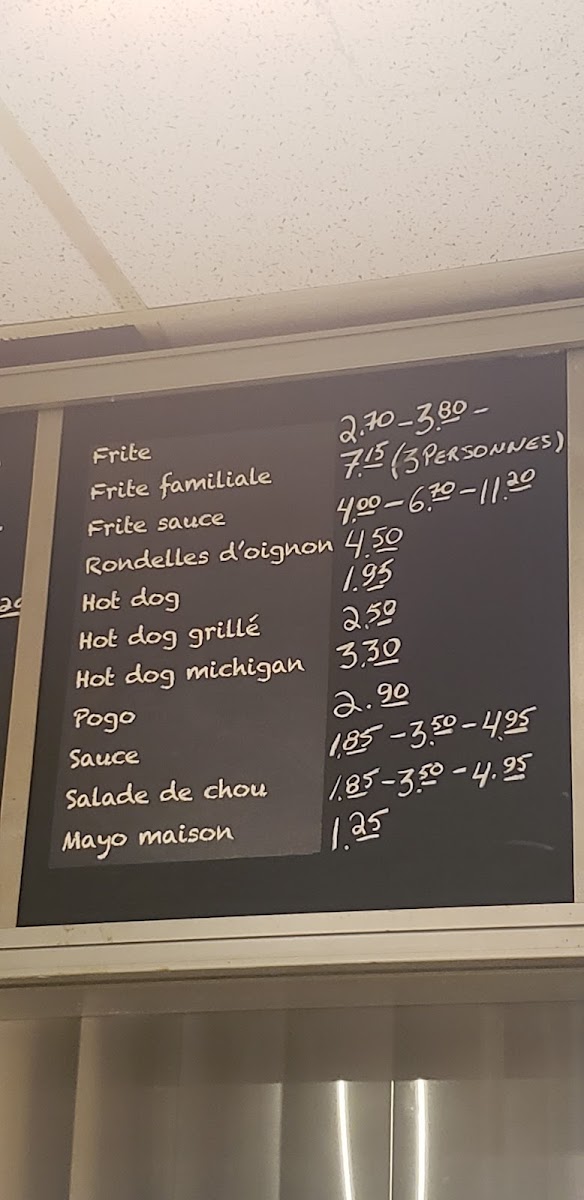 Frite 2.70 - 3.80 -
Frite familiale 7.15 (3 PERSONNES)
Frite sauce 4.00 - 6.70 - 11.20
Rondelles d'oignon 4.50
Hot dog 1.95
Hot dog grillé 2.50
Hot dog michigan 3.30
Pogo 2.90
Sauce 1.85 - 3.50 - 4.95
Salade de chou 1.85 - 3.50 - 4.95
Mayo maison 1.25